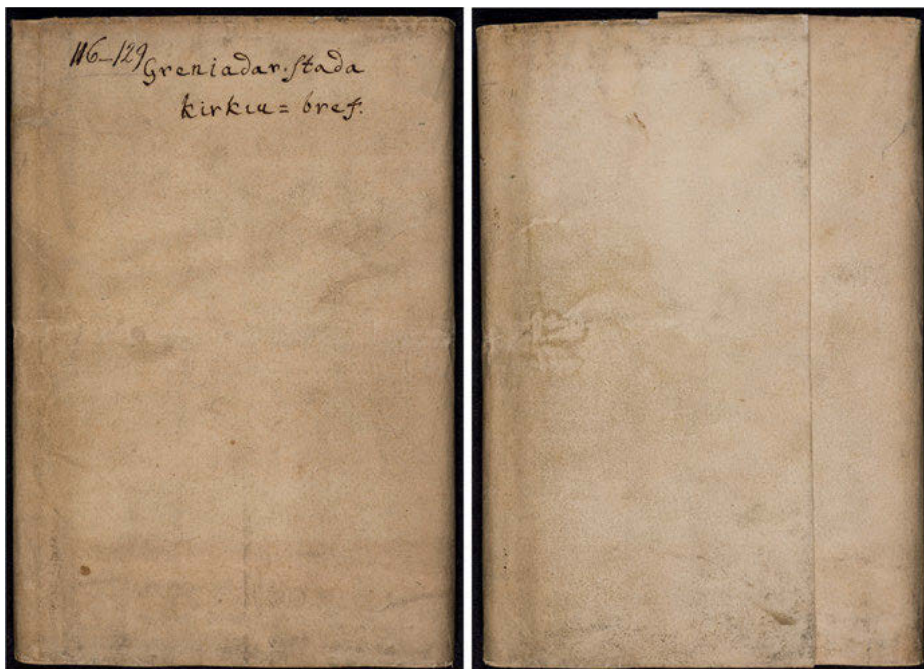 116–129 Greniadar-stada
kirkiu = bref.